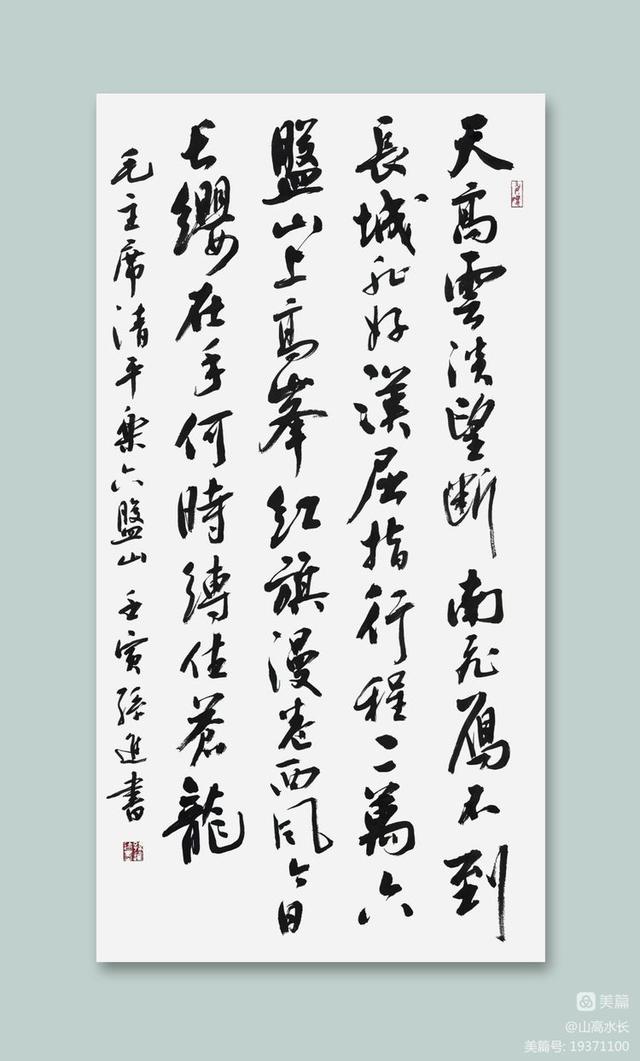 天高雲淡望断南飛雁不到
長城非好漢屈指行程二萬六
盤山上高峯紅旗漫卷西風今日
長纓在手何時縛住蒼龍
毛主席清平樂六盤山 壬寅孫進書
美篇
@山高水长
美篇号: 19371100